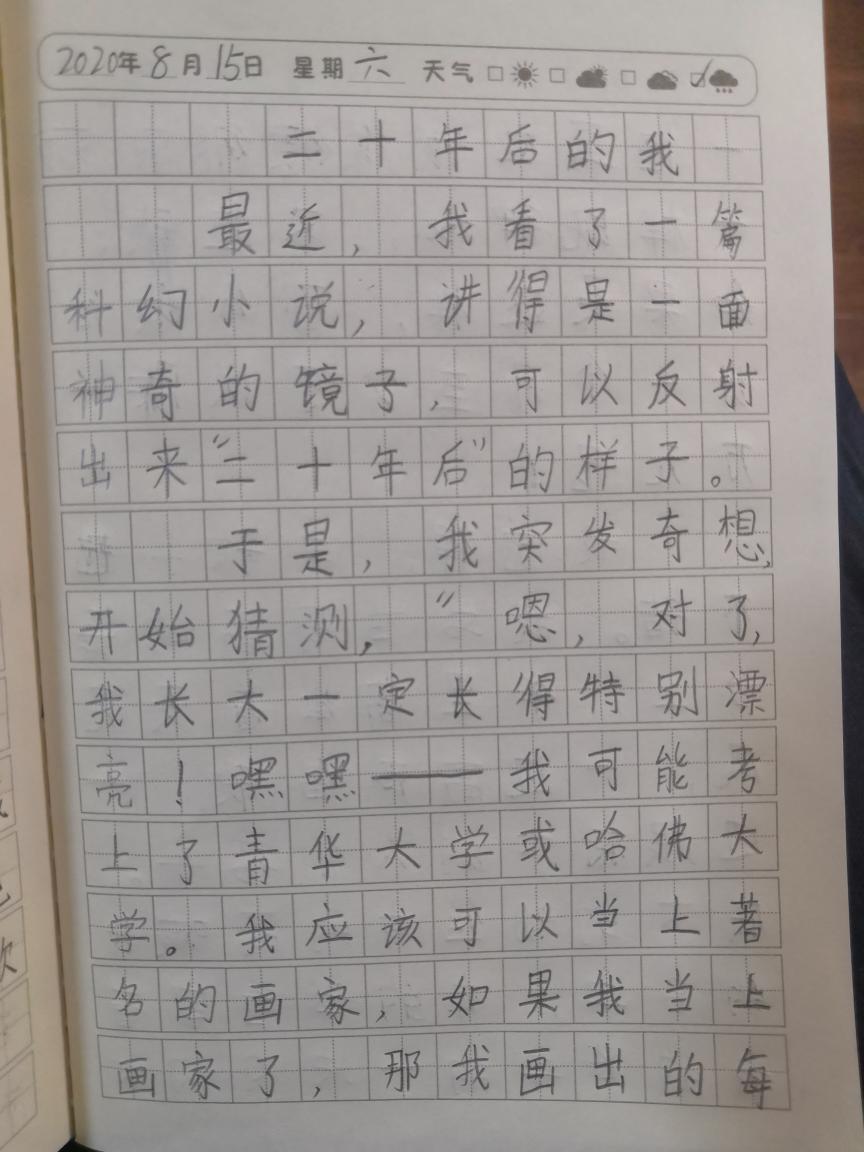 2020年8月15日 星期六 天气
二十年后的我
最近，我看了一篇
科幻小说，讲得是一面
神奇的镜子，可以反射
出来“二十年后”的样子。
于是，我突发奇想，
开始猜测，“嗯，对了，
我长大一定长得特别漂
亮！嘿嘿——我可能考
上了青华大学或哈佛大
学。我应该可以当上著
名的画家，如果我当上
画家了，那我画出的每